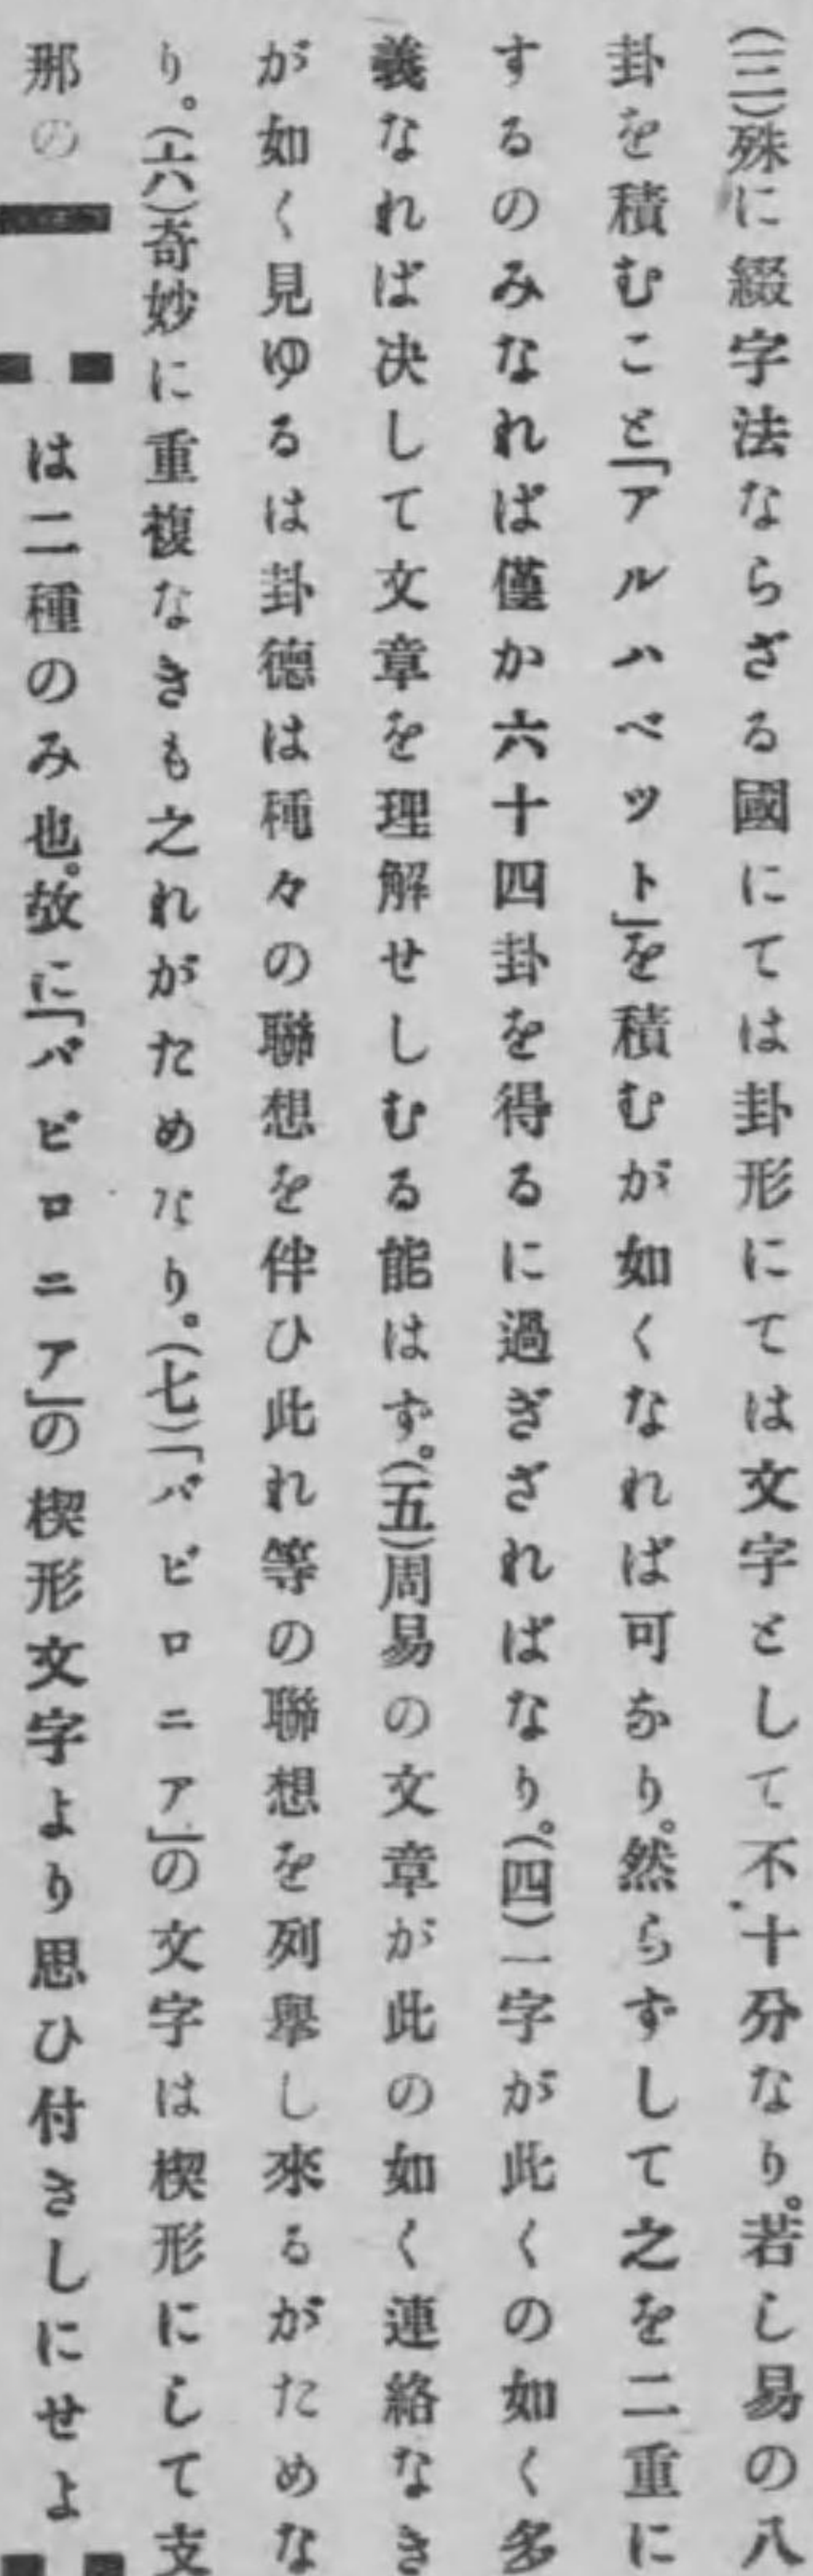 (三)殊に綴字法ならざる國にては卦形にては文字として不十分なり。若し易の八
卦を積むこと「アルハベット」を積むが如くなれば可なり。然らずして之を二重に
するのみなれば僅か六十四卦を得るに過ぎざればなり。(四)一字が此くの如く多
義なれば决して文章を理解せしむる能はず。(五)周易の文章が此の如く連絡なき
が如く見ゆるは卦德は種々の聯想を伴ひ此れ等の聯想を列擧し來るがためな
り。(六)奇妙に重複なきも之れがためなり。(七)「バビロニア」の文字は楔形にして支
那の⚊ ⚋は二種のみ也。故に「バビロニア」の楔形文字より思ひ付きしにせよ